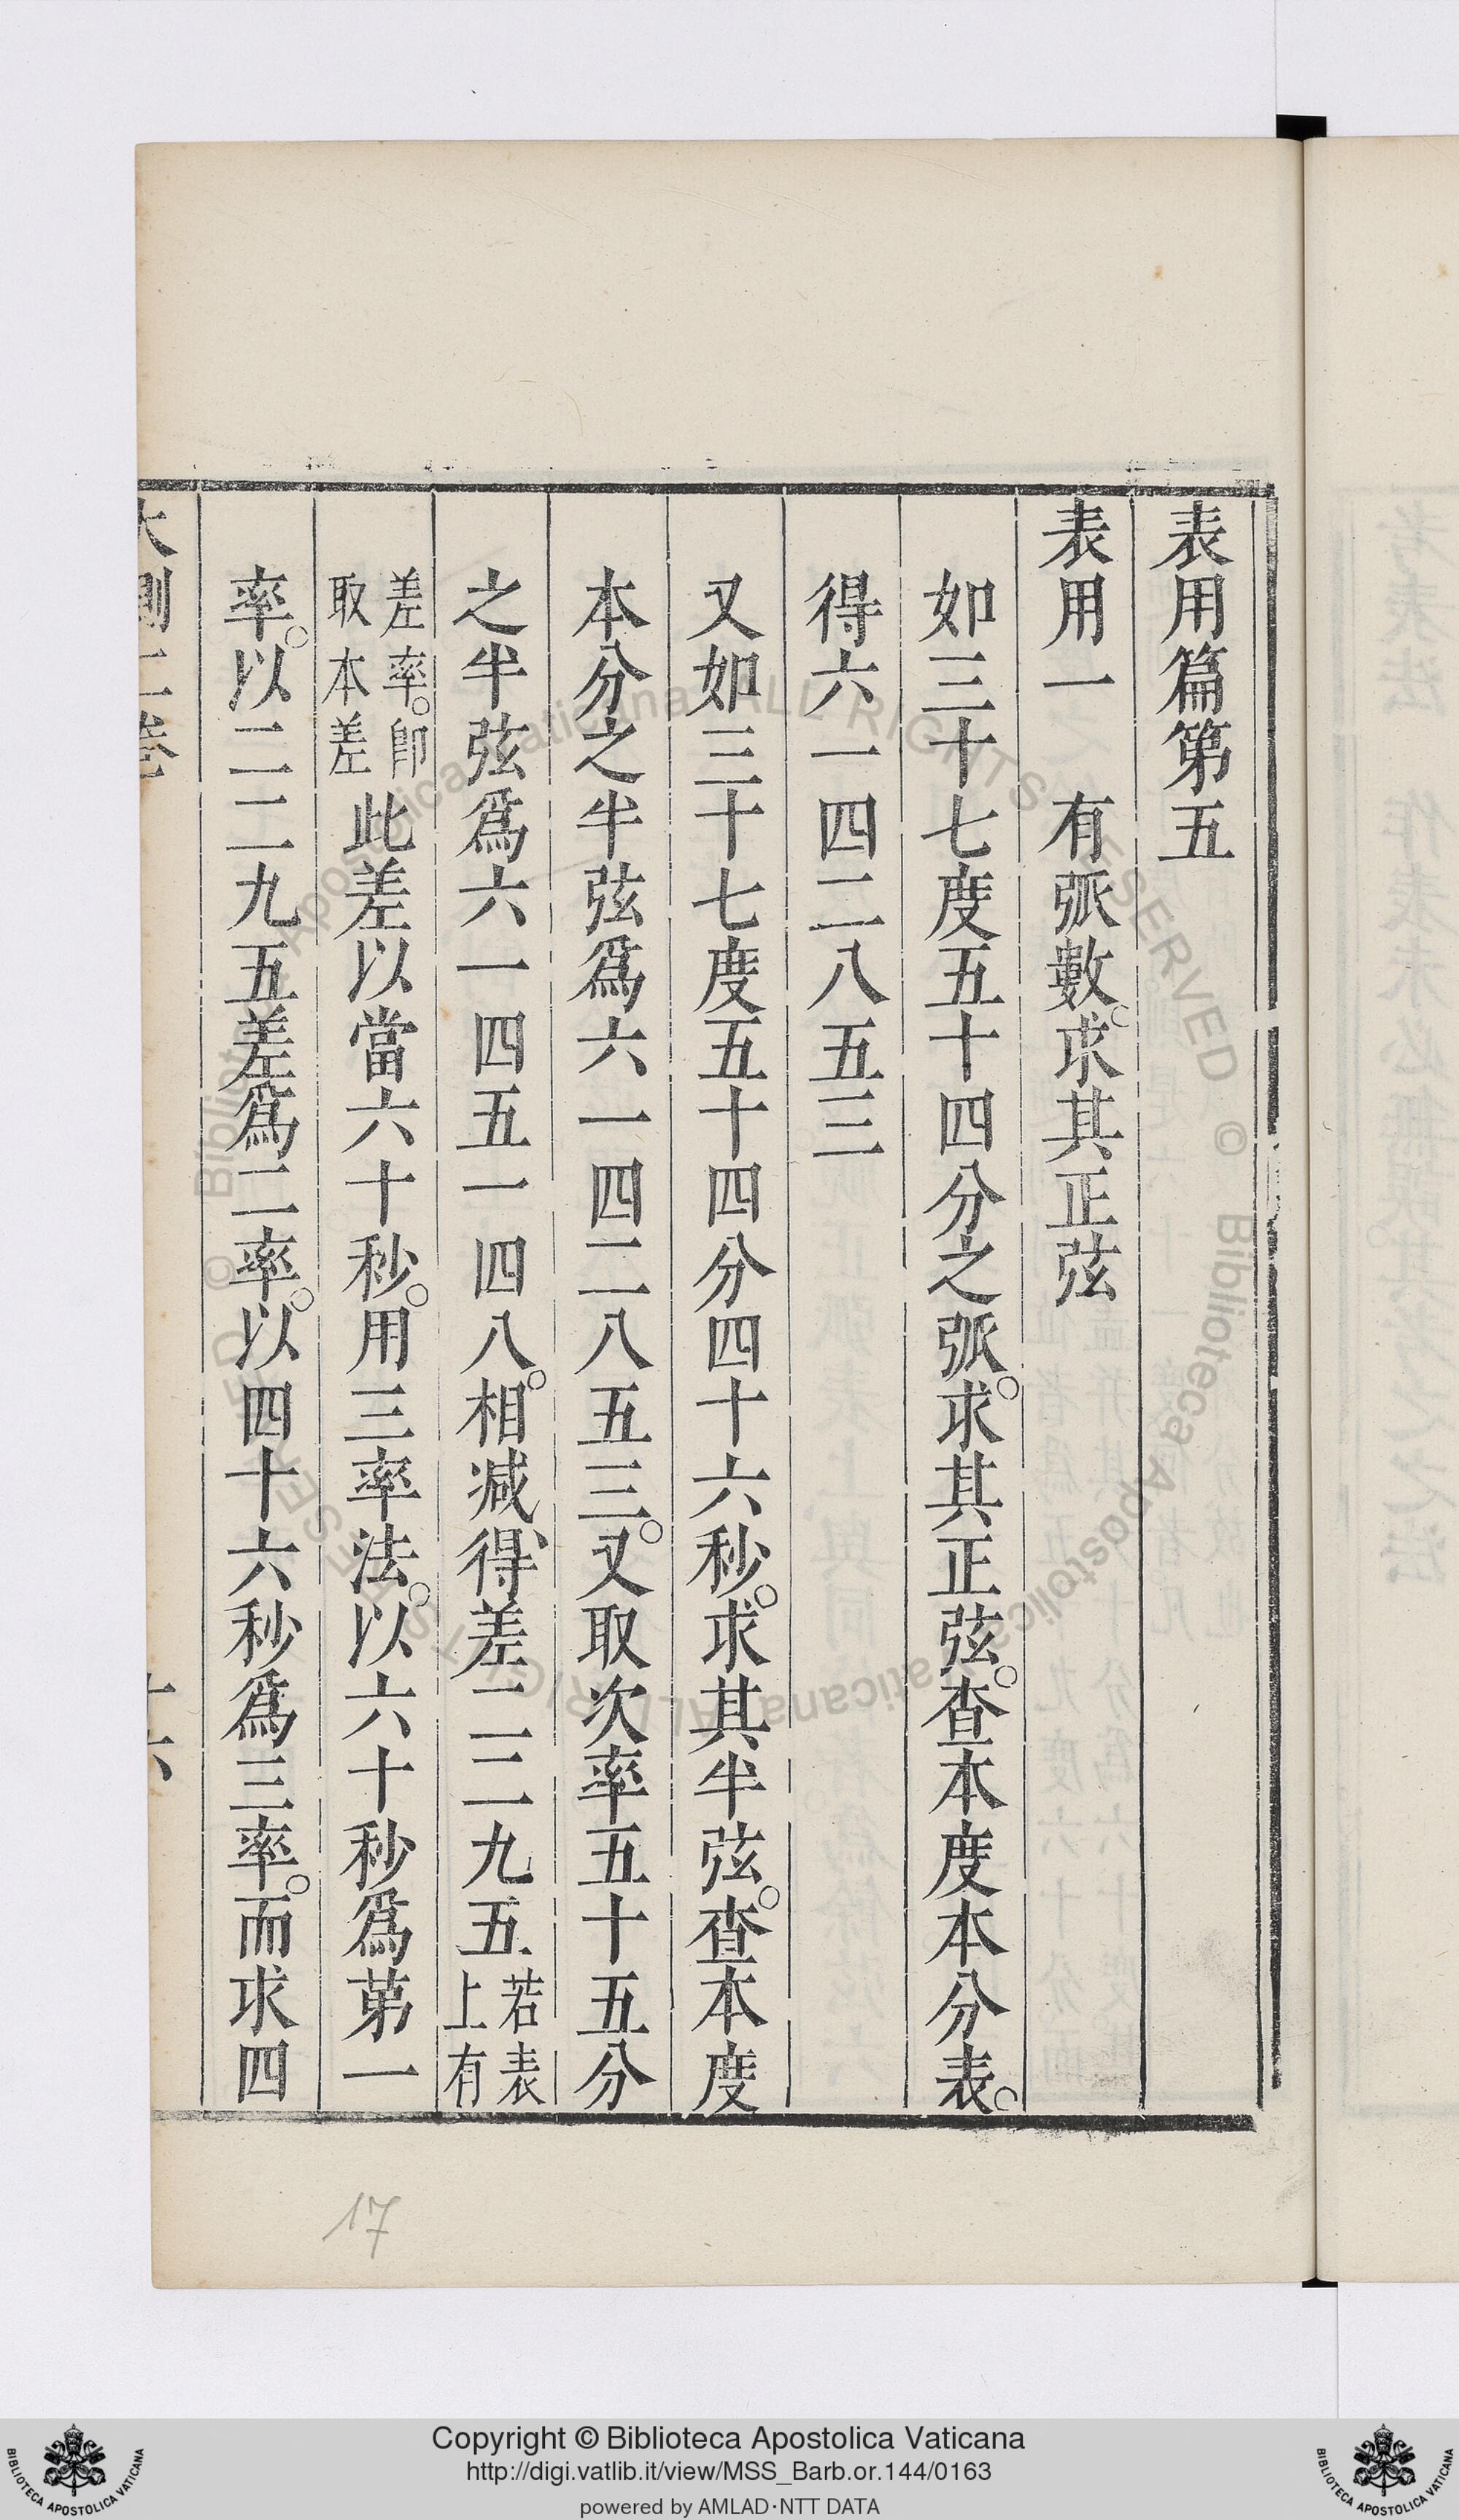 表用篇第五
表用一　有弧數。求其正弦
如三十七度五十四分之弧。求其正弦。查本度本分表。
得六一四二八五三
又如三十七度五十四分四十六秒。求其半弦。查本度
本分之半弦爲六一四二八五三。又取次率五十五分
之半弦爲六一四五一四八。相減、得差二二九五若表上有
差率。卽取本差此差以當六十秒。用三率法。以六十秒爲第一
率。以二二九五差爲二率。以四十六秒爲三率。而求四
大測二卷　十六
17
Copyright © Biblioteca Apostolica Vaticana
http://digi.vatlib.it/view/MSS_Barb.or.144/0163
powered by AMLAD·NTT DATA
BIBLIOTECA APOSTOLICA VATICANA
BIBLIOTECA APOSTOLICA VATICANA